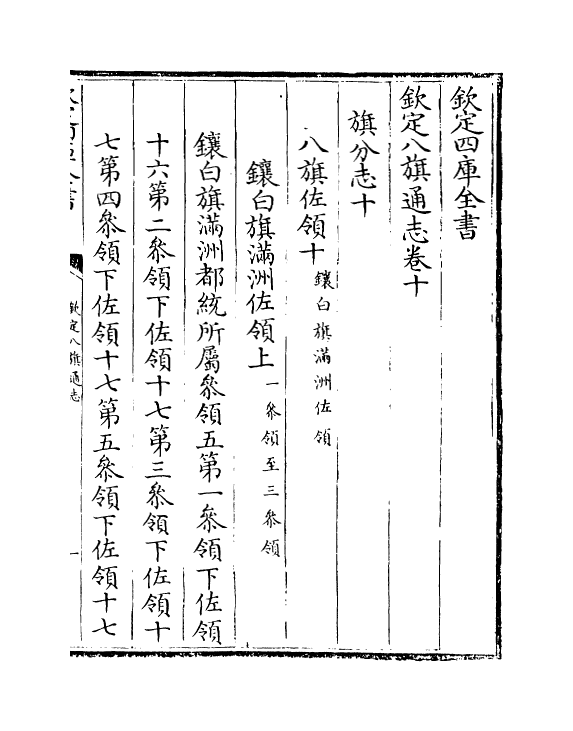 欽定四庫全書
欽定八旗通志卷十
旗分志十
八旗佐領十鑲白旗滿洲佐領
鑲白旗滿洲佐領上一叅領至三叅領
鑲白旗滿洲都統所屬叅領五第一叅領下佐領
十六第二叅領下佐領十七第三叅領下佐領十
七第四叅領下佐領十七第五叅領下佐領十七
欽定八旗通志
一